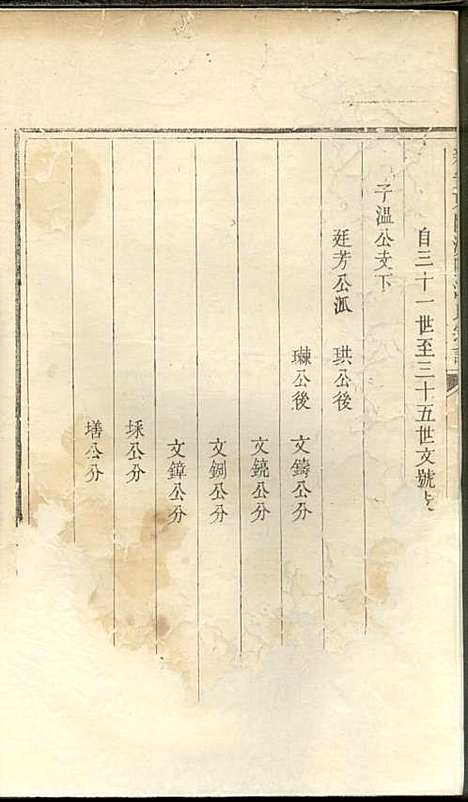 自三十一世至三十五世文號
子溫公支下
廷芳公派 珙公後
璛公後 文鑄公分
文鐃公分
文錭公分
文鐘公分
埰公分
墡公分